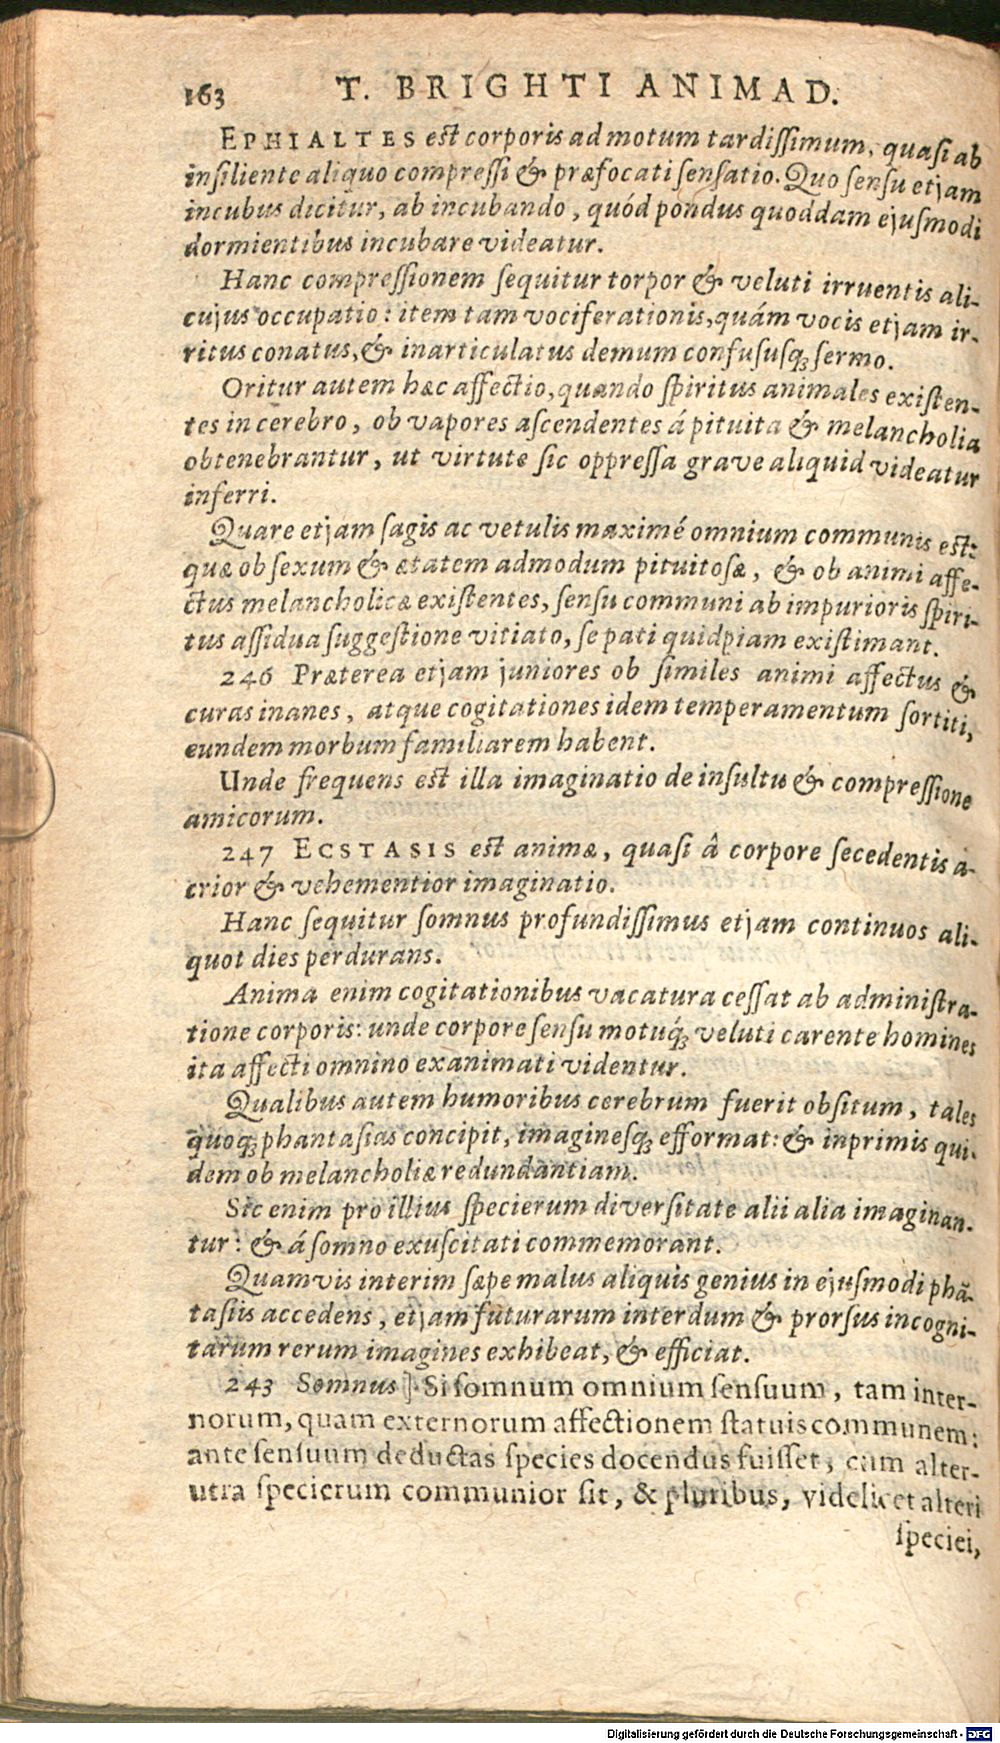 163 T. BRIGHTI ANIMAD.
EPHIALTES est corporis ad motum tardissimum, quasi ab
insiliente aliquo compressi & præfocati sensatio. Quo sensu etjam
incubus dicitur, ab incubando, quód pondus quoddam ejusmodi
dormientibus incubare videatur.
Hanc compressionem sequitur torpor & veluti irruentis ali-
cujus occupatio: item tam vociferationis, quám vocis etjam ir-
ritus conatus, & inarticulatus demum confususq; sermo.
Oritur autem hæc affectio, quando spiritus animales existen-
tes in cerebro, ob vapores ascendentes á pituita & melancholia
obtenebrantur, ut virtute sic oppressa grave aliquid videatur
inferri.
Quare etjam sagis ac vetulis maximé omnium communis est:
quæ ob sexum & ætatem admodum pituitosæ, & ob animi affe-
ctus melancholicæ existentes, sensu communi ab impurioris spiri-
tus assidua suggestione vitiato, se pati quidpiam existimant.
246 Præterea etjam juniores ob similes animi affectus &
curas inanes, atque cogitationes idem temperamentum sortiti,
eundem morbum familiarem habent.
Unde frequens est illa imaginatio de insultu & compressione
amicorum.
247 ECSTASIS est animæ, quasi â corpore secedentis a-
crior & vehementior imaginatio.
Hanc sequitur somnus profundissimus etjam continuos ali-
quot dies perdurans.
Anima enim cogitationibus vacatura cessat ab administra-
tione corporis: unde corpore sensu motuq́; veluti carente homines
ita affecti omnino exanimati videntur.
Qualibus autem humoribus cerebrum fuerit obsitum, tales
quoq; phantasias concipit, imaginesq; efformat: & inprimis qui-
dem ob melancholiæ redundantiam.
Sic enim pro illius specierum diversitate alii alia imaginan-
tur: & á somno exuscitati commemorant.
Quamvis interim sæpe malus aliquis genius in ejusmodi phã-
tasiis accedens, etjam futurarum interdum & prorsus incogni-
tarum rerum imagines exhibeat, & efficiat.
243 Somnus] Si somnum omnium sensuum, tam inter-
norum, quam externorum affectionem statuis communem:
ante sensuum deductas species docendus fuisset, cum alter-
utra specierum communior sit, & pluribus, videlicet alteri
speciei,
Digitalisierung gefördert durch die Deutsche Forschungsgemeinschaft - DFG